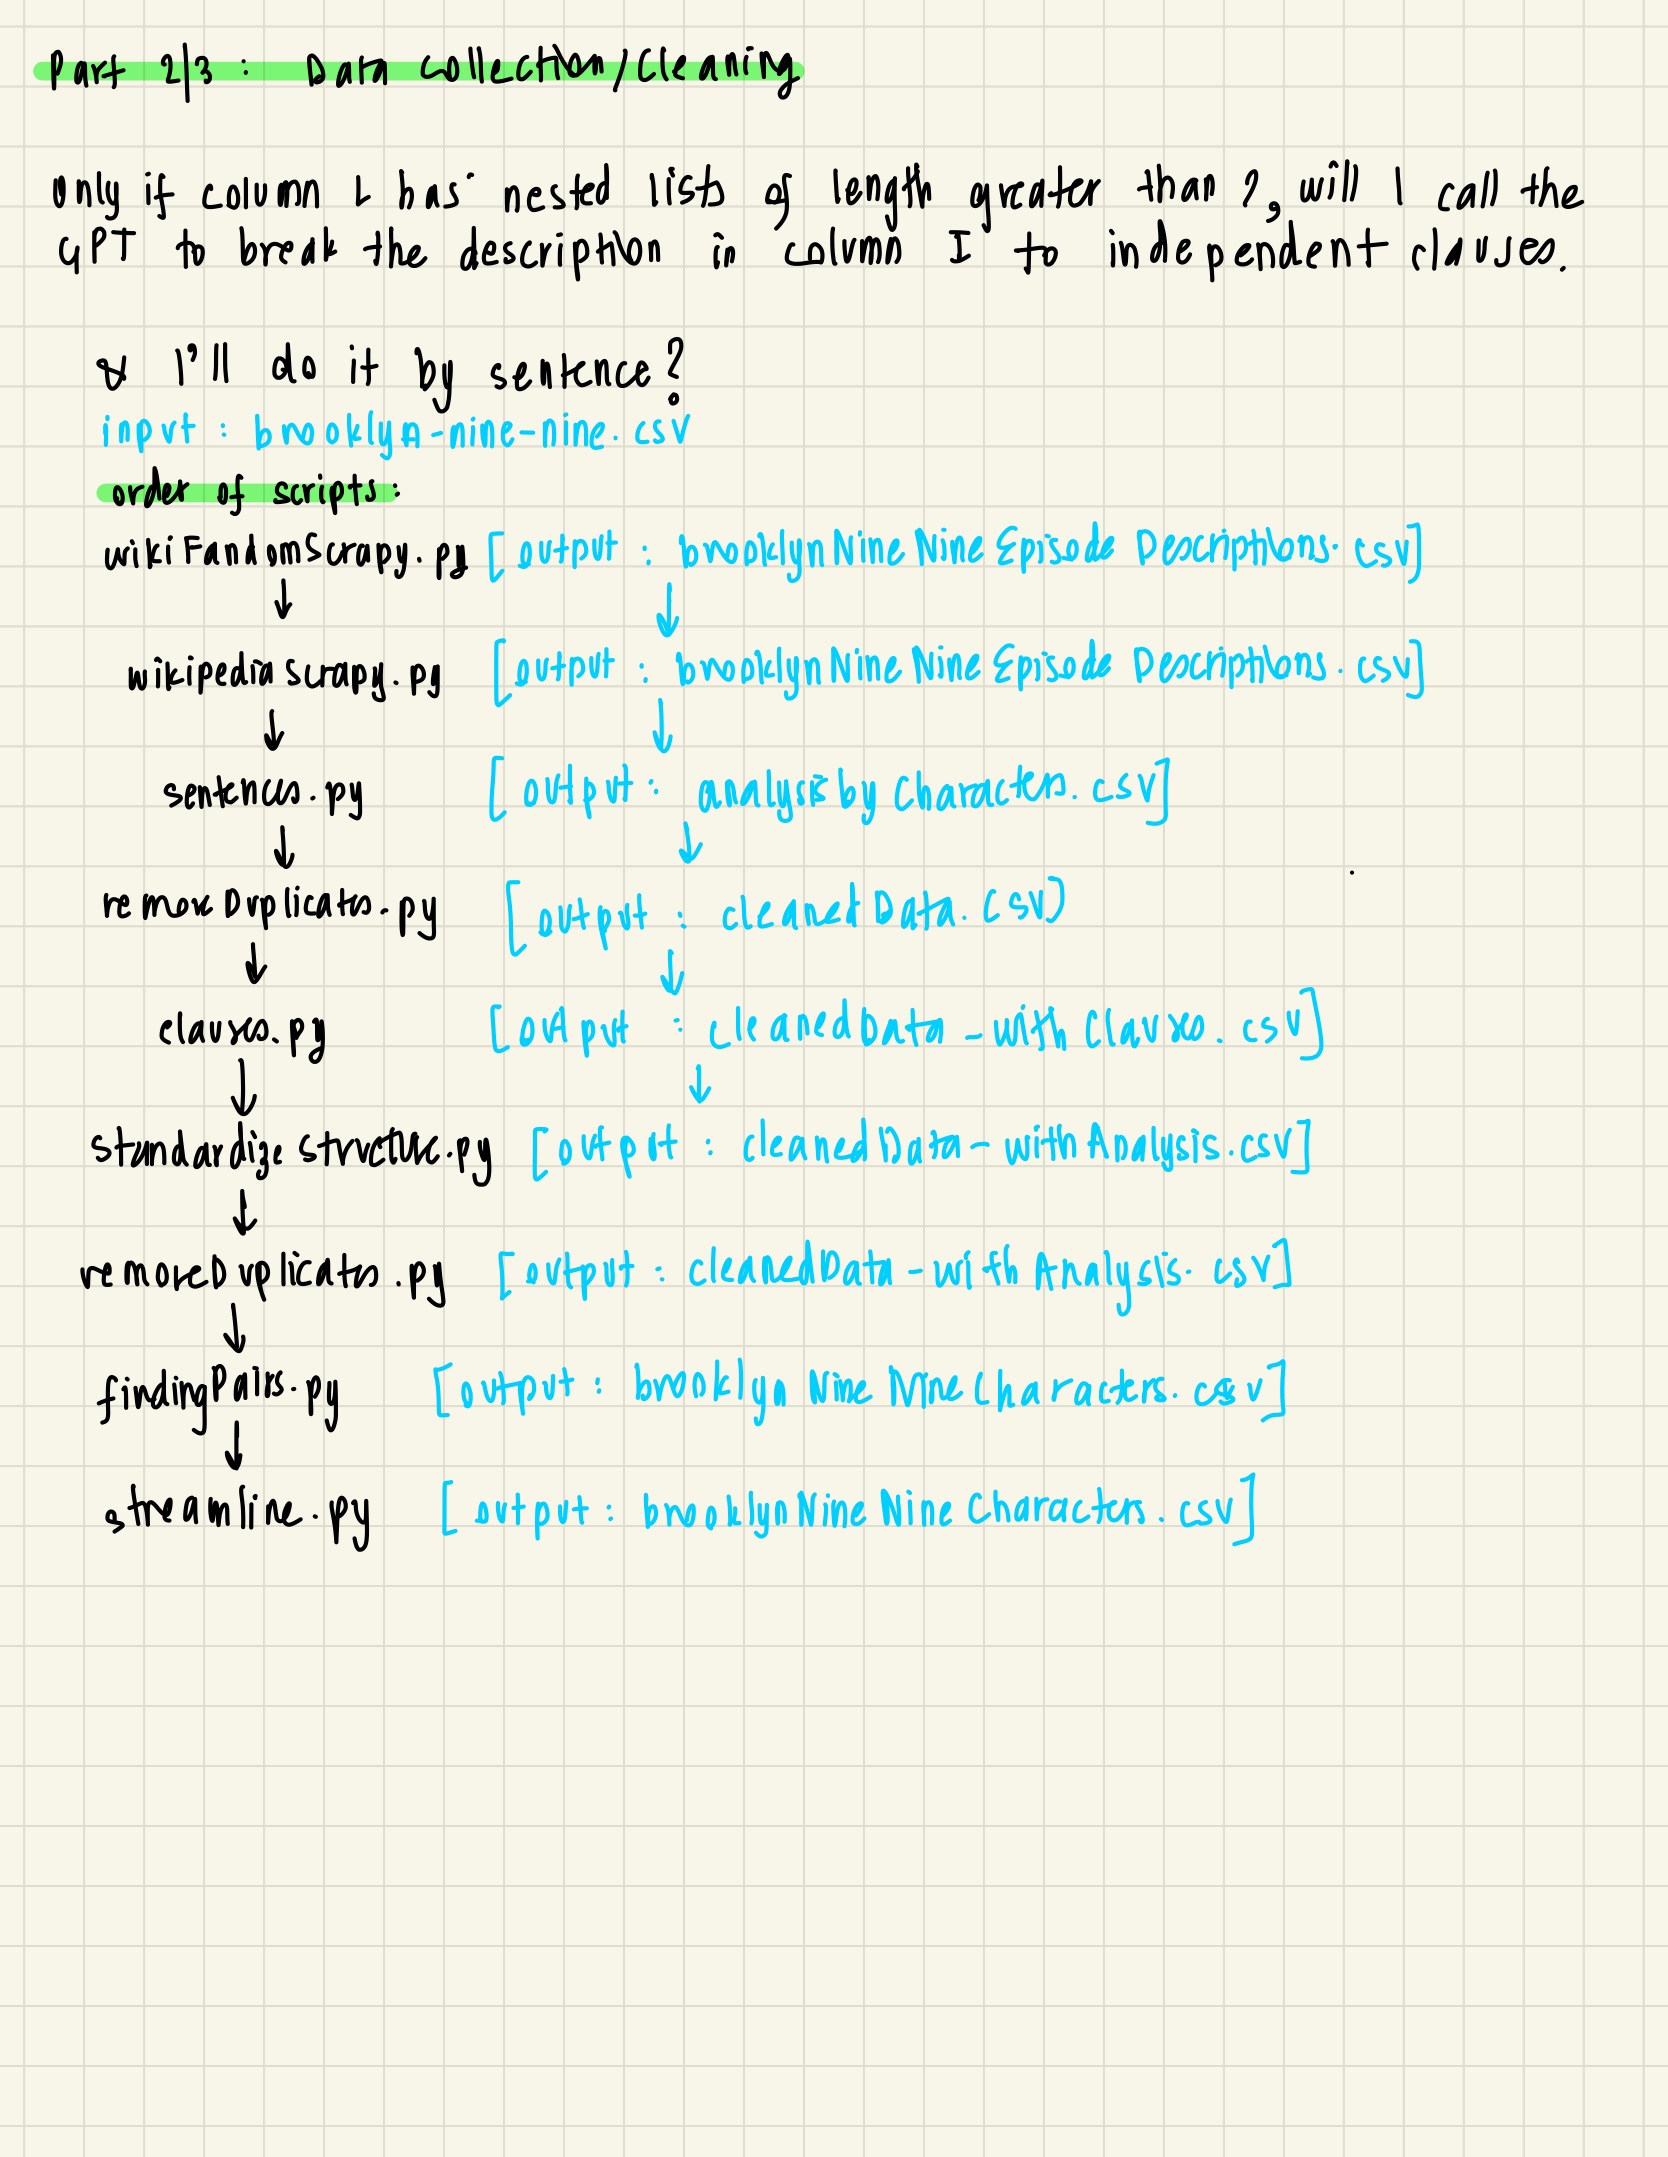 Part 2/3 : Data Collection/Cleaning
Only if column L has nested lists of length greater than 2, will I call the
GPT to break the description in column I to independent clauses.
& I'll do it by sentence?
input : brooklyn-nine-nine.csv
order of scripts:
wikiFandomScrapy.py [output : brooklynNineNineEpisodeDescriptions.csv]
↓ ↓
wikipediaScrapy.py [output : brooklynNineNineEpisodeDescriptions.csv]
↓ ↓
sentences.py [output : analysisbyCharacters.csv]
↓ ↓
removeDuplicates.py [output : cleanedData.csv]
↓ ↓
clauses.py [output : cleanedData-withClauses.csv]
↓ ↓
standardizeStructure.py [output : cleanedData-withAnalysis.csv]
↓
removeDuplicates.py [output : cleanedData-withAnalysis.csv]
↓
findingPairs.py [output : brooklynNineNineCharacters.csv]
↓
streamline.py [output : brooklynNineNineCharacters.csv]